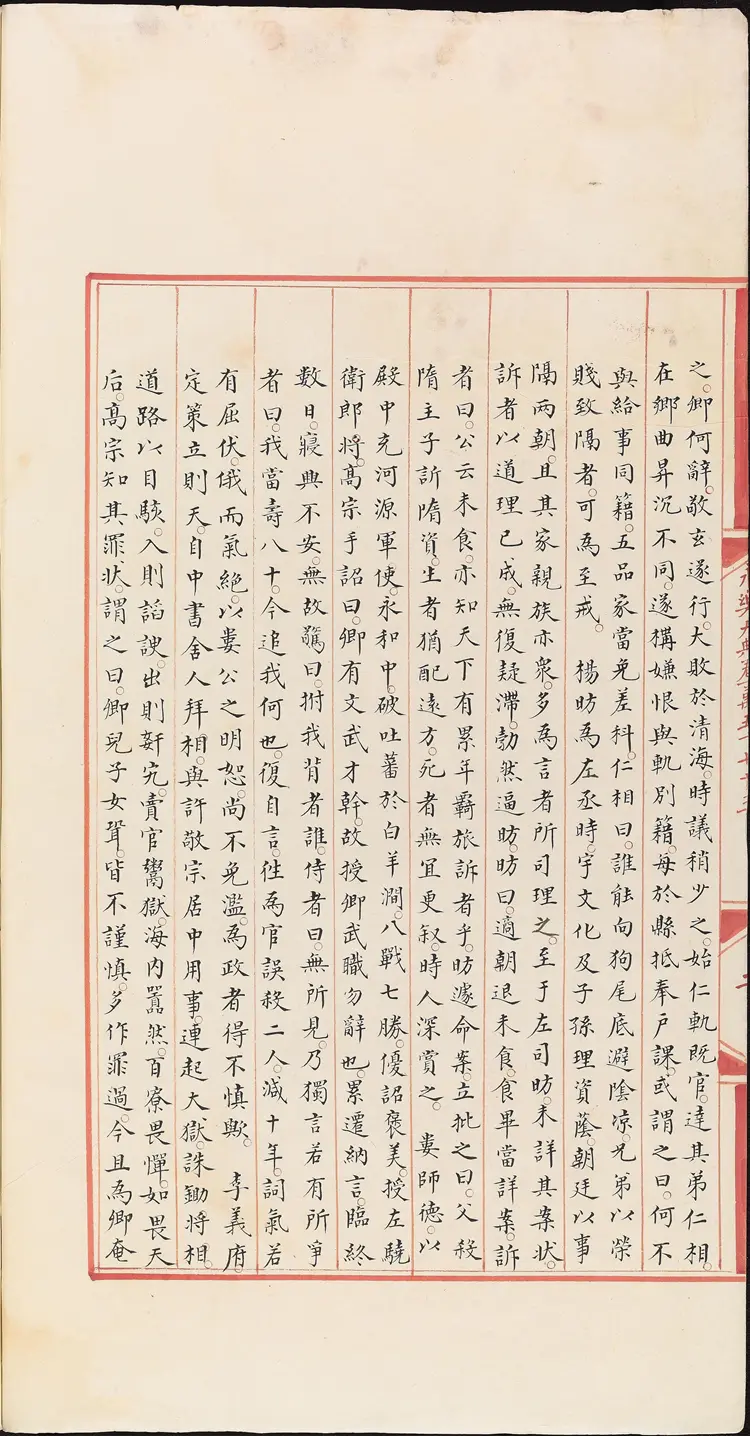 之。卿何辭。敬玄遂行。大敗於清海。時議稍少之。始仁軌既官。達其弟仁相。
在鄉曲昇沉不同。遂搆嫌恨與軌別籍。每於縣抵奉戶課。或謂之曰。何不
與給事同籍。五品家當免差科。仁相曰。誰能向狗尾底避陰凉。兄弟以榮
賤致隔者。可為至戒。 楊昉為左丞時。宇文化及子孫理資蔭。朝廷以事
隔兩朝。且其家親族亦衆。多為言者所司理之。至于左司昉。未詳其案狀。
訴者以道理已成。無復疑滯。勃然逼昉。昉曰。適朝退未食。食畢當詳案。訴
者曰。公云未食。亦知天下有累年羇旅訴者乎。昉遽命案。立批之曰。父殺
隋主子訢隋資。生者猶配遠方。死者無宜更叙。時人深賞之。 婁師德。以
殿中充河源軍使。永和中。破吐蕃於白羊澗。八戰七勝。優詔褒美。授左驍
衛郎將。高宗手詔曰。卿有文武才幹。故授卿武職勿辭也。累遷納言。臨終
數日。寢興不安。無故驚曰。拊我背者誰。侍者曰。無所見。乃獨言若有所爭
者曰。我當壽八十。今追我何也。復自言。徃為官誤殺二人。減十年。詞氣若
有屈伏。俄而氣絕。以婁公之明恕。尚不免濫。為政者得不慎歟。 李義府。
定策立則天。自中書舍人拜相。與許敬宗居中用事。連起大獄。誅鋤將相。
道路以目駭。入則謟諛。出則姧宄。賣官鬻獄。海内嚣然。百寮畏憚。如畏天
后。高宗知其罪狀。謂之曰。卿兒子女聟。皆不謹慎。多作罪過。今且為卿奄